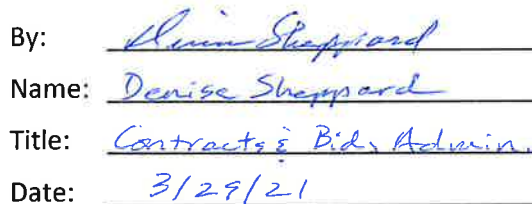 By: Denise Sheppard
Name: Denise Sheppard
Title: Contracts & Bids Admin.
Date: 3/29/21